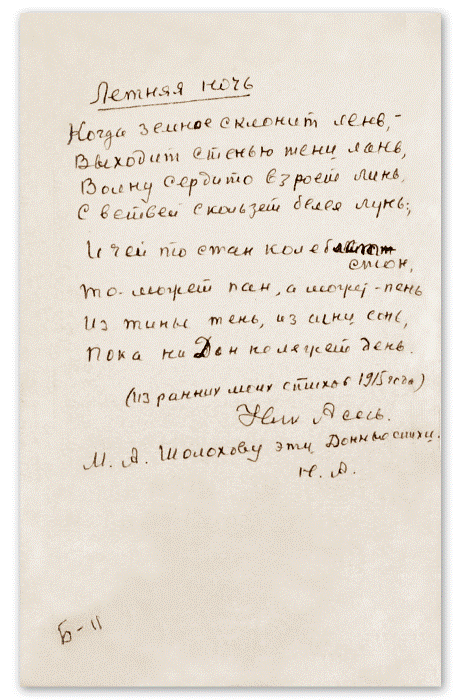 Летняя ночь
Когда земное склонит лень,-
Выходит с тенью тени лань,
Волну сердито взроет линь,
С ветвей скользет белея лунь;
И чей то стан колеблет
стон,
То-может пан, а может-пень
Из тины тень, из сини сонь,
Пока на Дон не ляжет день.
(Из ранних моих стихов 1915 года)
Ник Асеев.
М. А. Шолохову эти Донные стихи.
Н. А.
Б-11